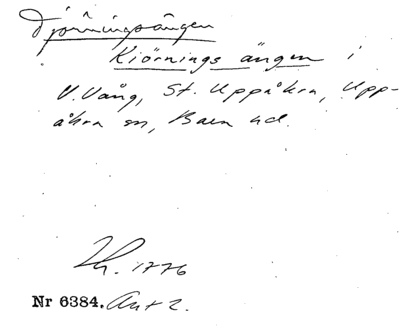 Djörningsängen
Kiörnings ängen i
V. Vång, St. Uppåkra, Upp-
åkra sn, Bara hd.
1776
Nr 6384. Art 2.